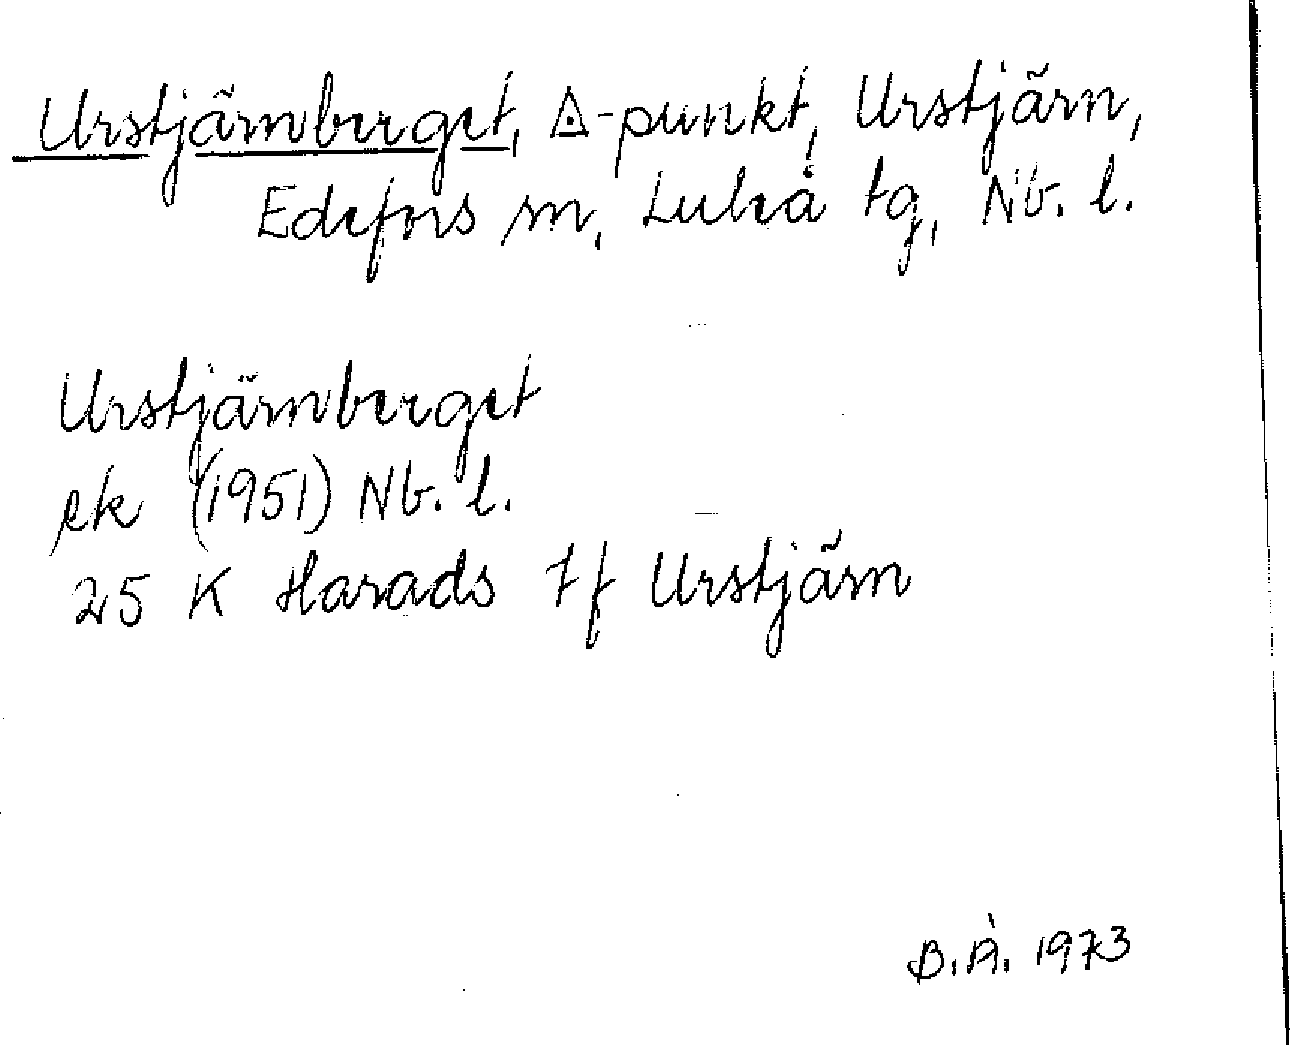 Urstjärnberget, ◬-punkt, Urstjärn,
Edefors sn, Luleå tg, Nb. l.
Urstjärnberget
ek (1951) Nb. l.
25 K Harads 7f Urstjärn
B.Å. 1973